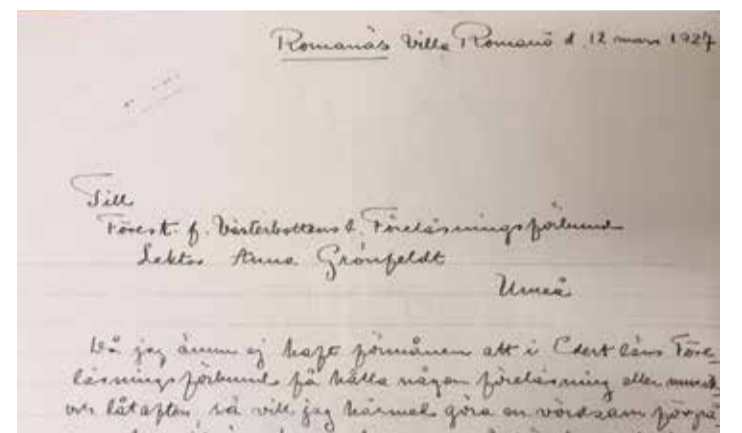 Romanäs Villa Romanö d. 12 mars 1927
Till
Förest. f. Västerbottens l. Föreläsningsförbund
Lektor Anna Grönfeldt
Umeå
Då jag ännu ej haft förmånen att i Edert läns Före-
läsningsförbund få hålla någon föreläsning eller musik
och låtafton, så vill jag härmed göra en vördsam förfrå-